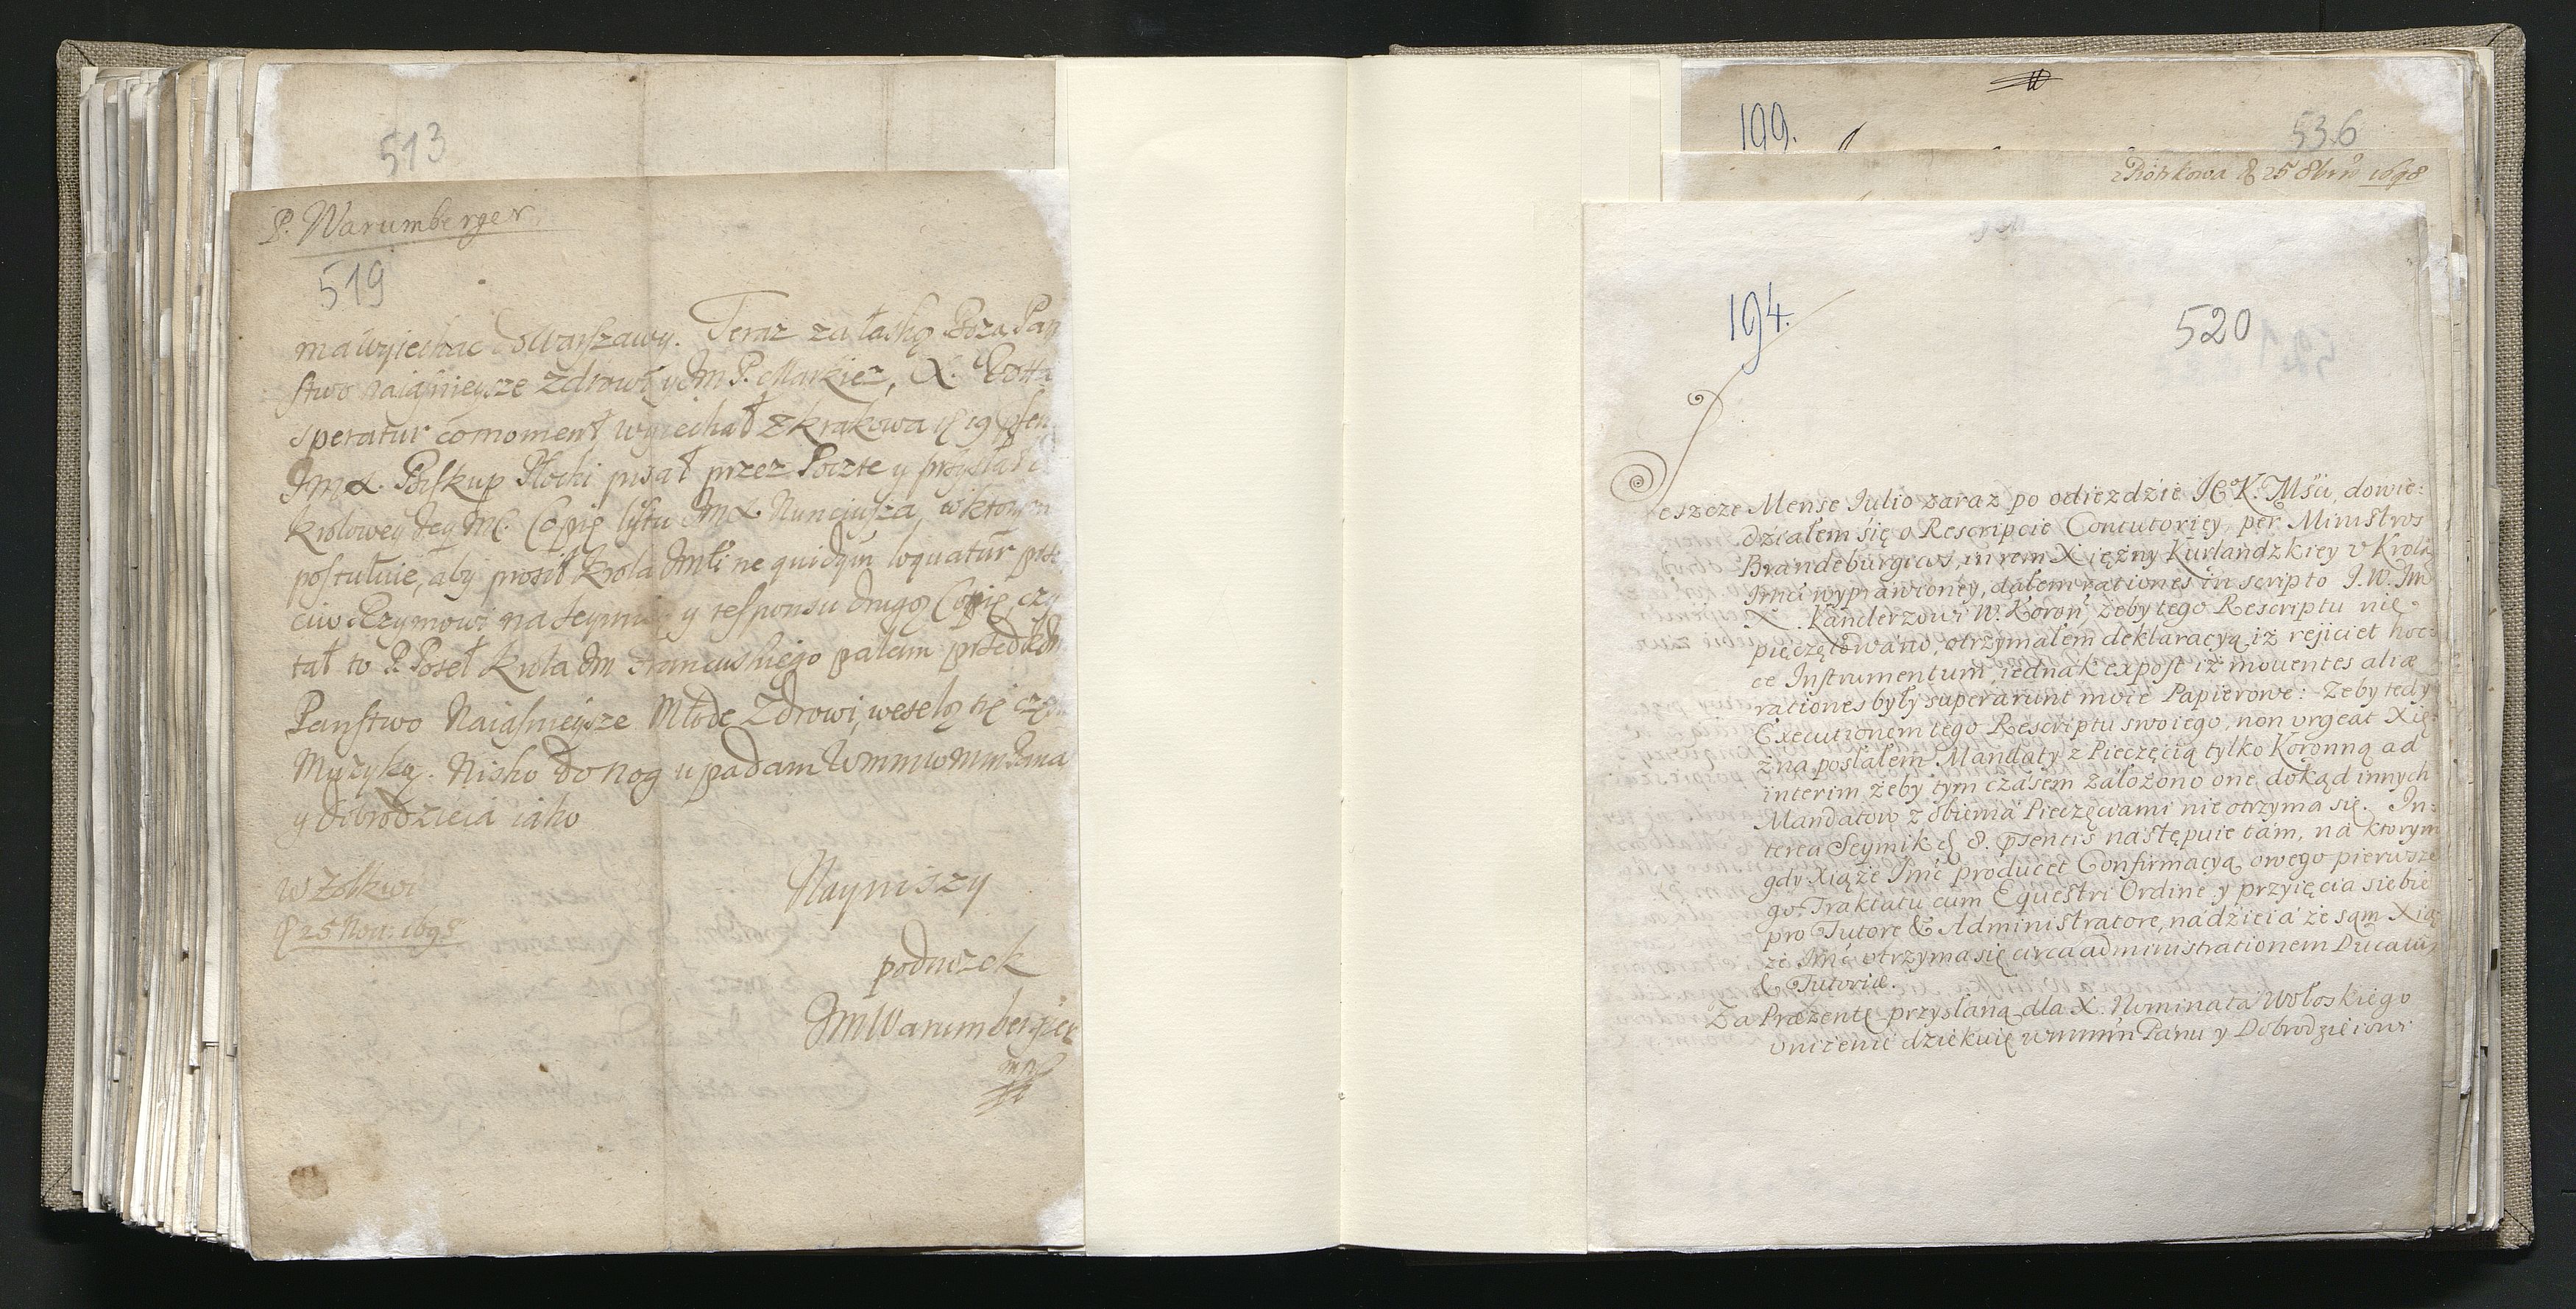 513
P. Warumberger
519
ma wyiechac do Warszawy. Teraz za łaską Boża Pan
stwo naiasnieysze zdrowi y Jm P. Markiez, X.
speratur co moment, wyiechał z Krakowa d 19
Jm X. Biskup Płocki pisał przez Poczte y przysłał
krolowey Jeg Mc. Copię lystu Jm X. Nunciusza, w ktorym
postuluie, aby prosił Krola Jmsci ne quidqm loquatur prze
ciw Rzymowi na Seymie y responsu drugą Copię, czy
tał to P. Poseł Krola Jm Francuskiego palam przed
Panstwo Naiasnieysze Młode Zdrowi, weselą się
Muzyką. Nisko do nog upadam Wmmmm Pana
y dobrodzieia iako
w Zołkwi
d 25 Nou: 1698
Nayniszy
podnozek
JMWarumberger
mp
199.
536
z Piotrkowa d 25 8bris 1698
194.
520
eszcze Mense Iulio zaraz po odiezdzie I K. Mści, dowie:
działem się o Rescripcie Contutoriey, per Ministros
Brandeburgicos, in rem Xiężny Kurlandzkiey v Krola
Jmći wyprawioney, dałem rationes in scripto J. W. Jm
X. Kanclerzowi W. Koron, żeby tego Rescriptu nie
pieczętowano, otrzymałem deklaracyą iż rejiciet hoc:
ce Instrumentum, iednak expost iż mouentes aliæ
rationes były superarunt moie Papierowe: Zeby tedy
Executionem tego Rescriptu swoiego, non vrgeat Xię:
żna posłałem Mandaty z Pieczęcią tylko Koronną ad
interim żeby tym czasem założono one, dokąd innych
Mandatow z obiema Pieczęciami nie otrzyma się. In:
terea Seymik d 8. præsentis następuie tam, na ktorym
gdy Xiąże Jmć producet Confirmacyą owego pierwsze
go Traktatu cum Equestri Ordine y przyięcia siebie
pro Tutore & Administratore, nadzieia że sam Xią
że Jmć otrzyma się circa administrationem Ducatus
& Tutoriæ.
Za Præzentę przysłaną dla X. Nominata Wołoskiego
vniżenie dziękuię wmmm Panu y Dobrodzieiowi